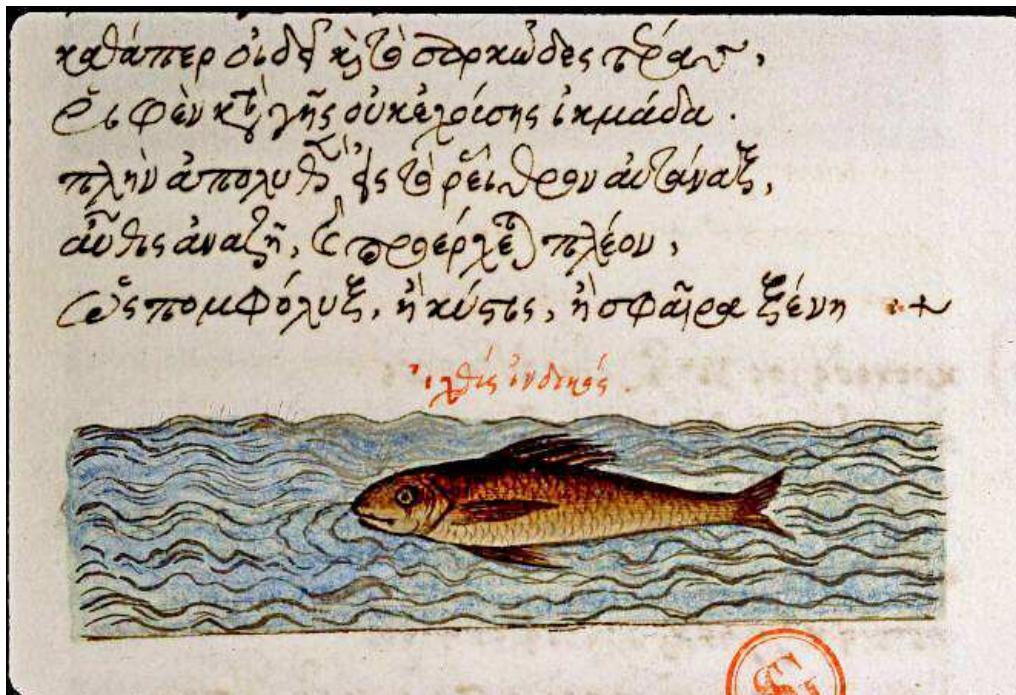 καθάπερ οἶδε καὶ τὸ σαρκῶδες
γῆς οὐκ ἐχούσης ἰκμάδα.
πλὴν ἀπολυθὲν εἰς τὸ ῥεῖθρον αὐτάναξ,
αὖθις ἀναζῆ, καὶ προέρχεται πλέον,
ὡς πομφόλυξ, ἢ κύστις, ἢ σφαῖρα ξένη
ἰχθὺς ἰνδικός.